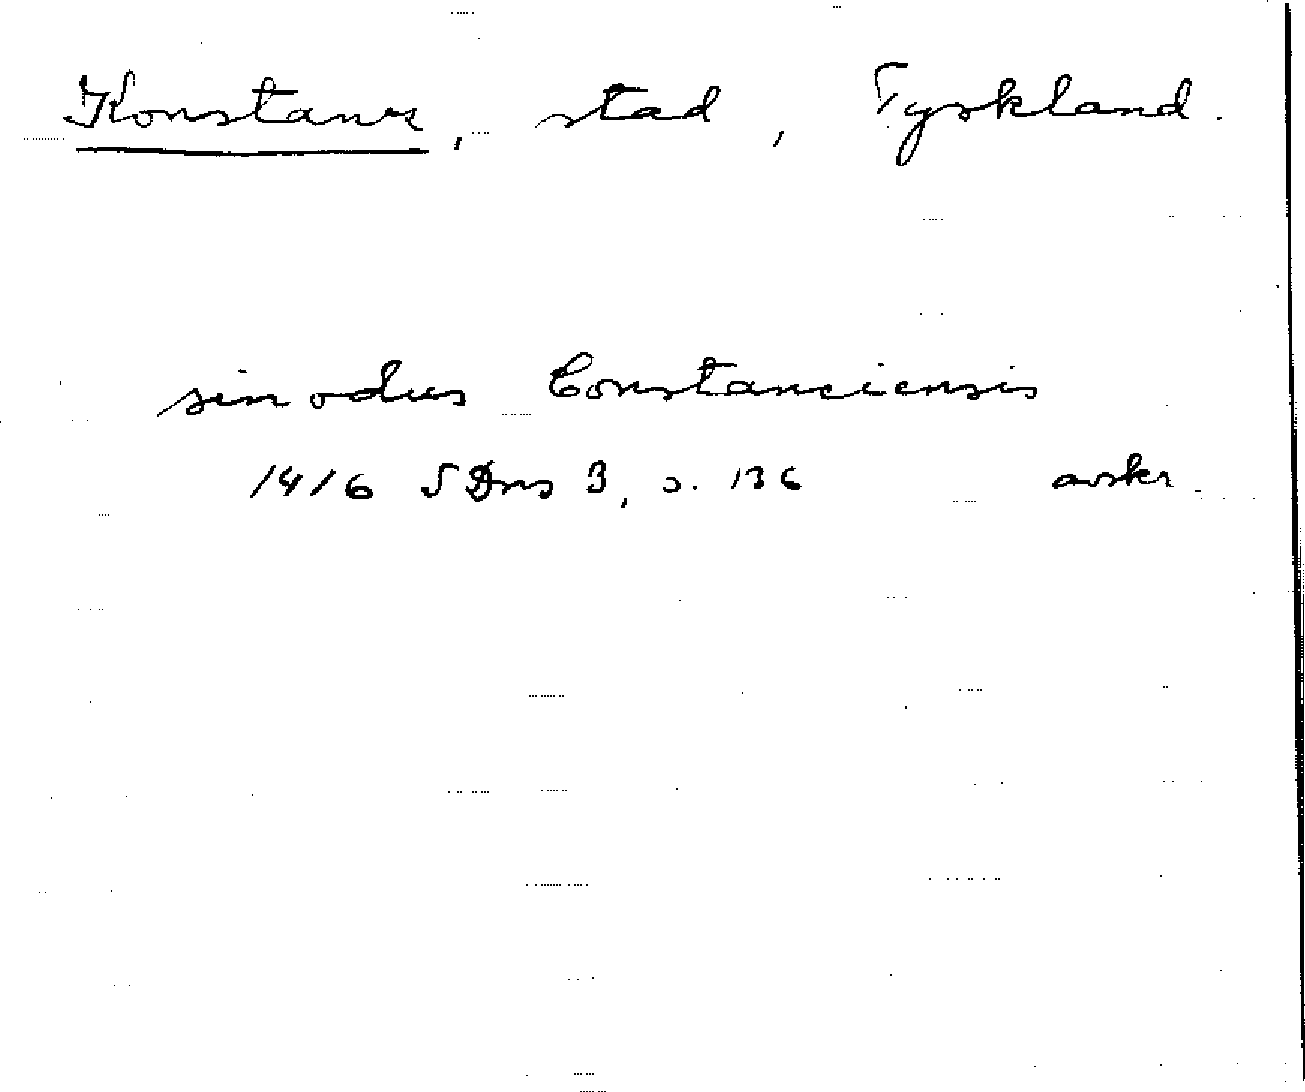 Konstanz, stad, Tyskland.
sinodus Constanciensis
1416 SDns 3, s. 136 avskr.